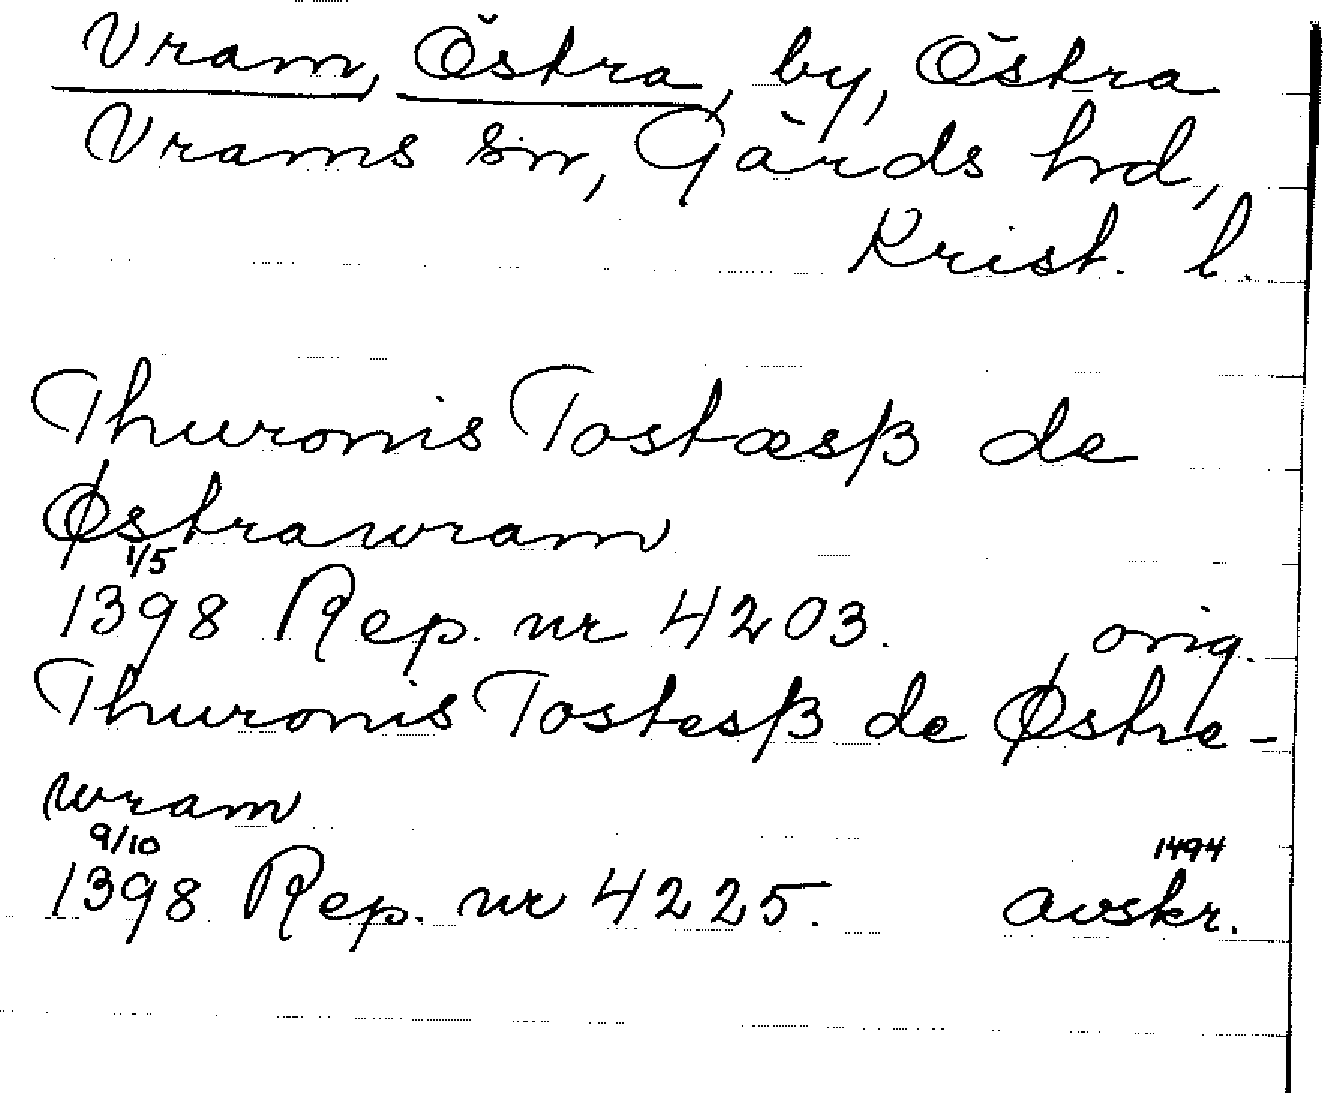 Vram, Östra, by, Östra
Vrams sn, Gärds hd,
Krist. l.
Thuronis Tostæsß de
Østrawram
1/5
1398 Rep. nr 4203. orig.
Thuronis Tostesß de Østre-
wram
9/10
1398 Rep. nr 4225. 1494 avskr.